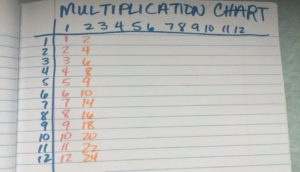 MULTIPLICATION CHART
1 2 3 4 5 6 7 8 9 10 11 12
1 1 2
2 2 4
3 3 6
4 4 8
5 5 9
6 6 10
7 7 14
8 8 16
9 9 18
10 10 20
11 11 22
12 12 24